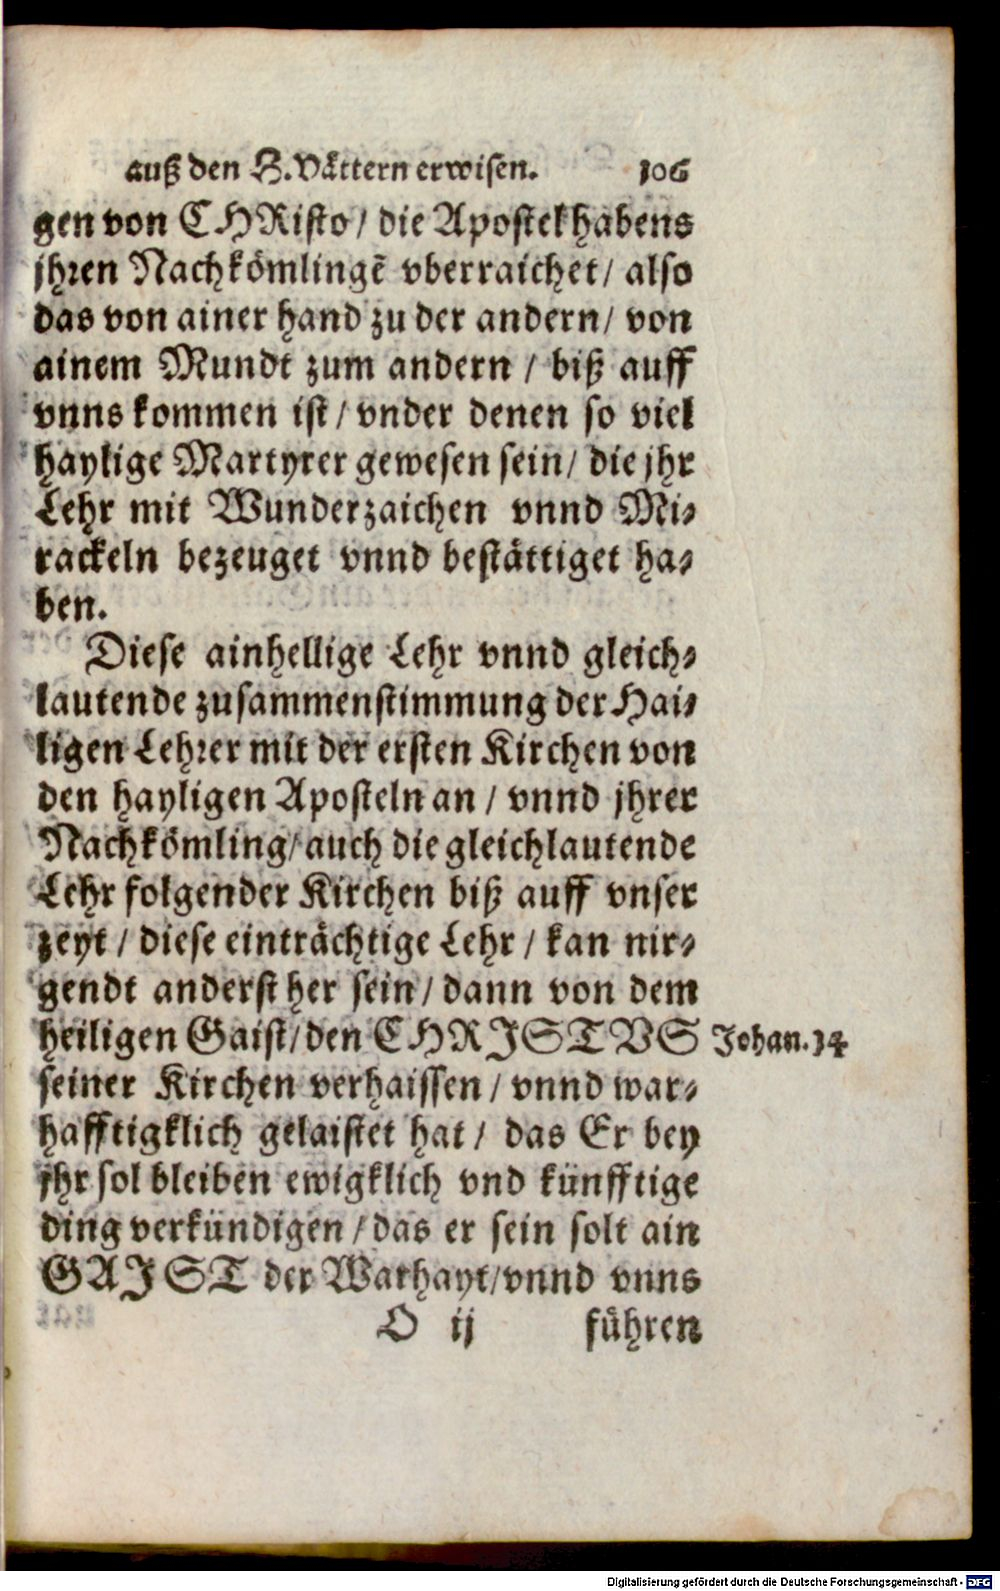 auß den H. Vättern erwisen. 106
gen von CHRisto / die Apostel habens
jhren Nachkömlingẽ vberraichet / also
das von ainer hand zu der andern / von
ainem Mundt zum andern / biß auff
vnns kommen ist / vnder denen so viel
haylige Martyrer gewesen sein / die jhr
Lehr mit Wunderzaichen vnnd Mi⸗
rackeln bezeuget vnnd bestättiget ha⸗
ben.
Diese ainhellige Lehr vnnd gleich⸗
lautende zusammenstimmung der Hai⸗
ligen Lehrer mit der ersten Kirchen von
den hayligen Aposteln an / vnnd jhrer
Nachkömling / auch die gleichlautende
Lehr folgender Kirchen biß auff vnser
zeyt / diese einträchtige Lehr / kan nir⸗
gendt anderst her sein / dann von dem
heiligen Gaist / den CHRISTVS Johan. 14
seiner Kirchen verhaissen / vnnd war⸗
hafftigklich gelaistet hat / das Er bey
jhr sol bleiben ewigklich vnd künfftige
ding verkündigen / das er sein solt ain
GAIST der Warhayt / vnnd vnns
O ij führen
Digitalisierung gefördert durch die Deutsche Forschungsgemeinschaft - DFG